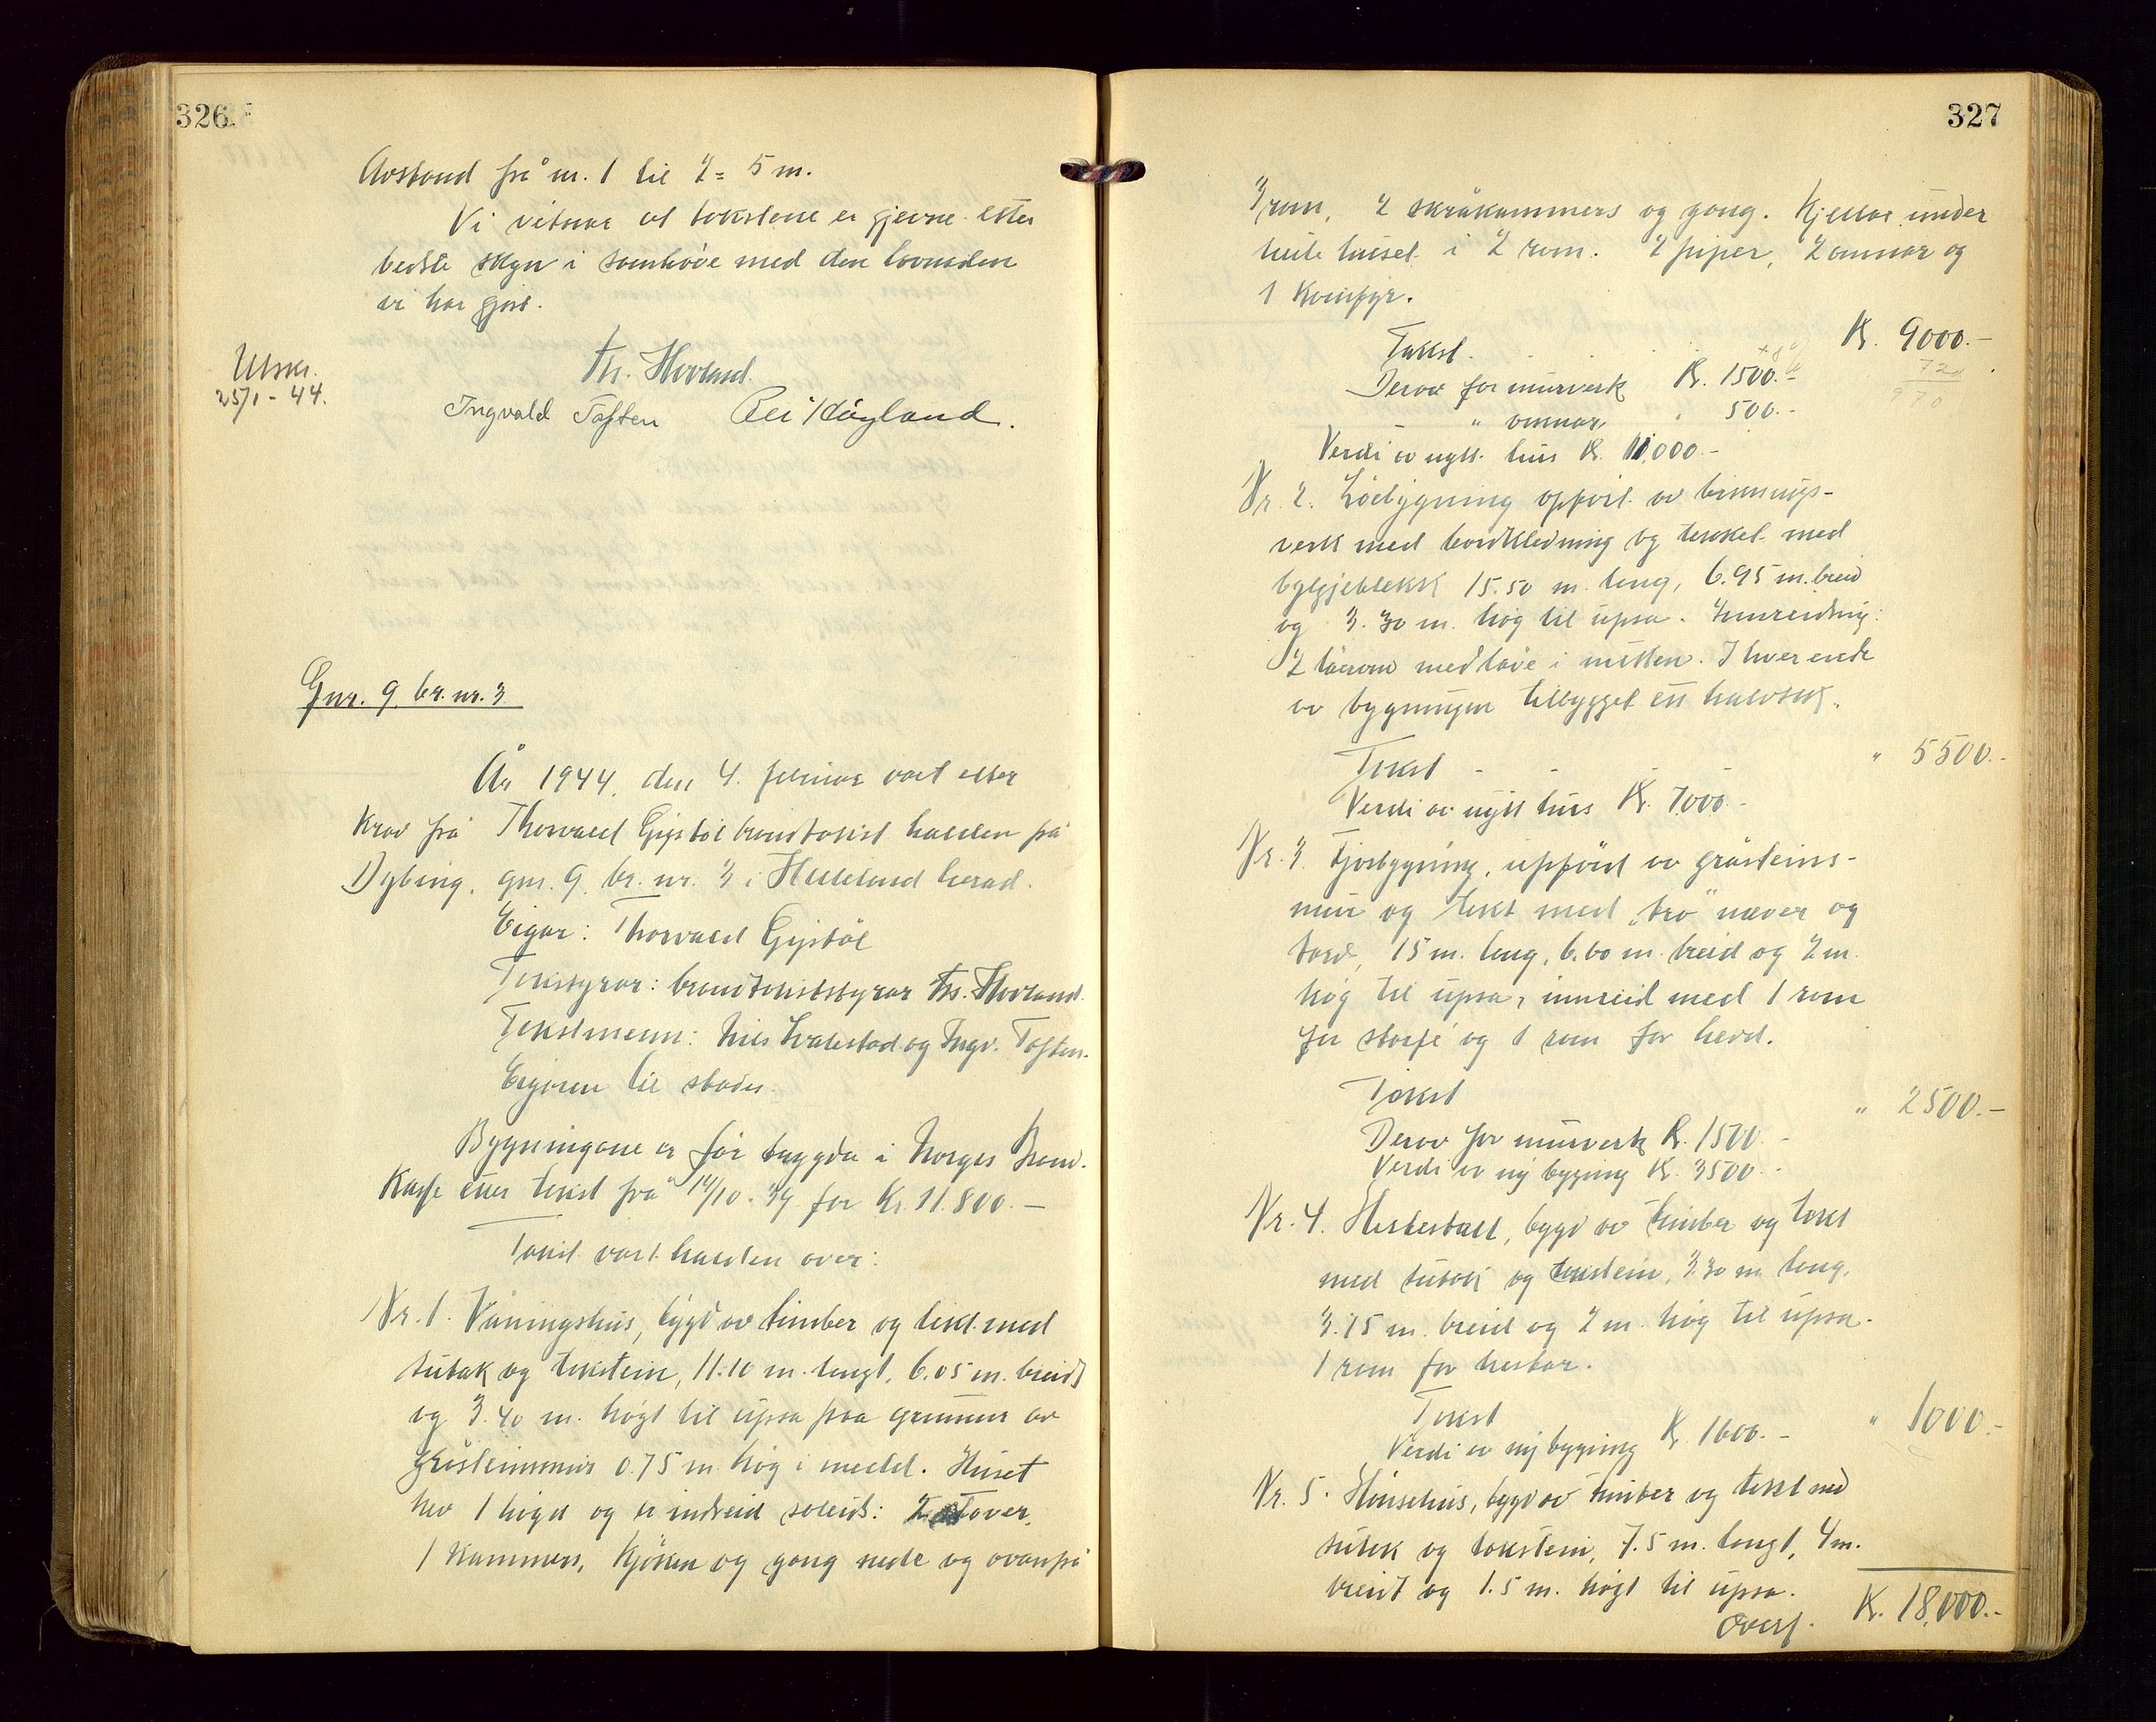 326
Avstand frå nr. 1 til 2 = 5 m.
Vi vitnar at takstene er gjevne etter
beste skyn i samhøve med den lovnaden
vi har gjort.
Utskr.
25/1 - 44.
Th. Hovland.
Ingvald Toften Rei Høyland.
Gnr. 9 br. nr. 3
År 1944, den 4. februar vart etter
krav frå Thorvald Gystøl brandtakst halden på
Dybing, gnr. 9 br. nr. 3 i Helleland herad.
Eigar: Thorvald Gystøl
Takstyrar: brandtakststyrar Th. Hovland.
Takstmenn: Nils Kvalestad og Ingv. Toften.
Eigaren til stades.
Bygningane er før trygda i Norges Brand-
Kasse etter takst frå 14/10-39 for Kr. 11.800.—
Takst vart halden over:
Nr. 1. Våningshus, bygt av timber og tekt med
sutak og takstein, 11.10 m. langt, 6.05 m. breidt
og 3.40 m. høgt til upsa paa grunnmur av
gråsteinsmur 0.75 m. høg i medel. Huset
hev 1 høgd og er indreid soleids: 2 stover,
1 kammers, kjøken og gang nede og ovanpå
327
3 rom, 2 skråkammers og gang. Kjellar under
heile huset i 2 rom. 2 piper, 2 omnar og
1 komfyr.
Takst. K. 9000.-
Derav for murverk K. 1500.-
" omnar " 500.-
Verdi av nytt hus K. 11.000.-
Nr. 2. Løebygning oppført av binnings-
verk med bordkledning og tekket med
bylgjeblekk 15.50 m. lang, 6.95 m. breid
og 3.30 m. høg til upsa. Innreidnig:
2 løerom med låve i midten. I hver ende
av bygningen tilbygget ett halvtekk.
Takst - - " 5500.-
Verdi av nytt hus K. 7000.-
Nr. 3. Fjosbygning, uppførd av gråsteins-
mur og tekt med "tro" næver og
torv, 15 m. lang, 6.60 m. breid og 2 m.
høg til upsa, innreid med 1 rom
for storfe og 1 rom for hevd.
Takst " 2500.—
Derav for murverk K. 1500.-
Verdi av ny bygning K. 3500.-
Nr. 4. Hestestall, bygd av timber og tekt
med sutak og takstein, 3.30 m. lang,
3.15 m. breid og 2 m. høg til upsa.
1 rom for hestar.
Takst " 1000.-
Verdi av ny bygning K. 1600.-
Nr. 5. Hønsehus, bygd av timber og tekt med
sutak og takstein, 7.5 m. langt, 4 m.
breidt og 1.5 m. høgt til upsa.
Overf. K. 18.000.-